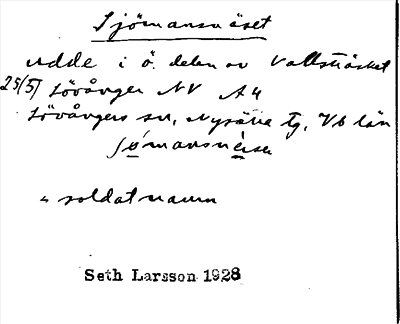 Sjömansnäset
udde i ö. delen av Vallsträsket
25/5) Lövånger NV A4
Lövångers sn, Nysätra tg, Vb län
soldatnamn
Seth Larsson 1928